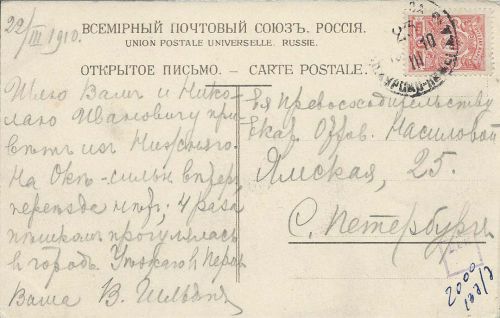 22/III 1910.
ВСЕМІРНЫЙ ПОЧТОВЫЙ СОЮЗЪ. РОССІЯ.
UNION POSTALE UNIVERSELLE. RUSSIE.
ОТКРЫТОЕ ПИСЬМО. — CARTE POSTALE.
Шлю Вамъ и Нико-
лаю Ивановичу при-
вѣтъ изъ Нижняго.
На Окѣ сильн. вѣтеръ,
переѣзда нѣтъ, 4 раза
пѣшкомъ прогулялась
въ городъ. Уѣзжаю въ
Ваша В.
Ея Превосходительству
Екат. Насиловой
Ямская, 25.
С. Петербургъ